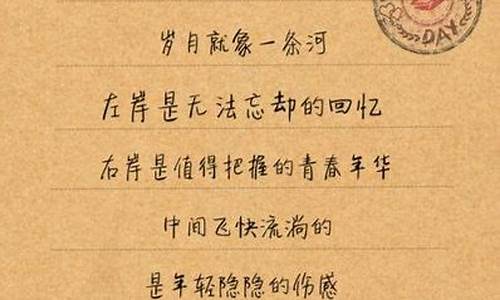 岁月就象一条河
左岸是无法忘却的回忆
右岸是值得把握的青春年华
中间飞快流淌的
是年轻隐隐的伤感
DAY